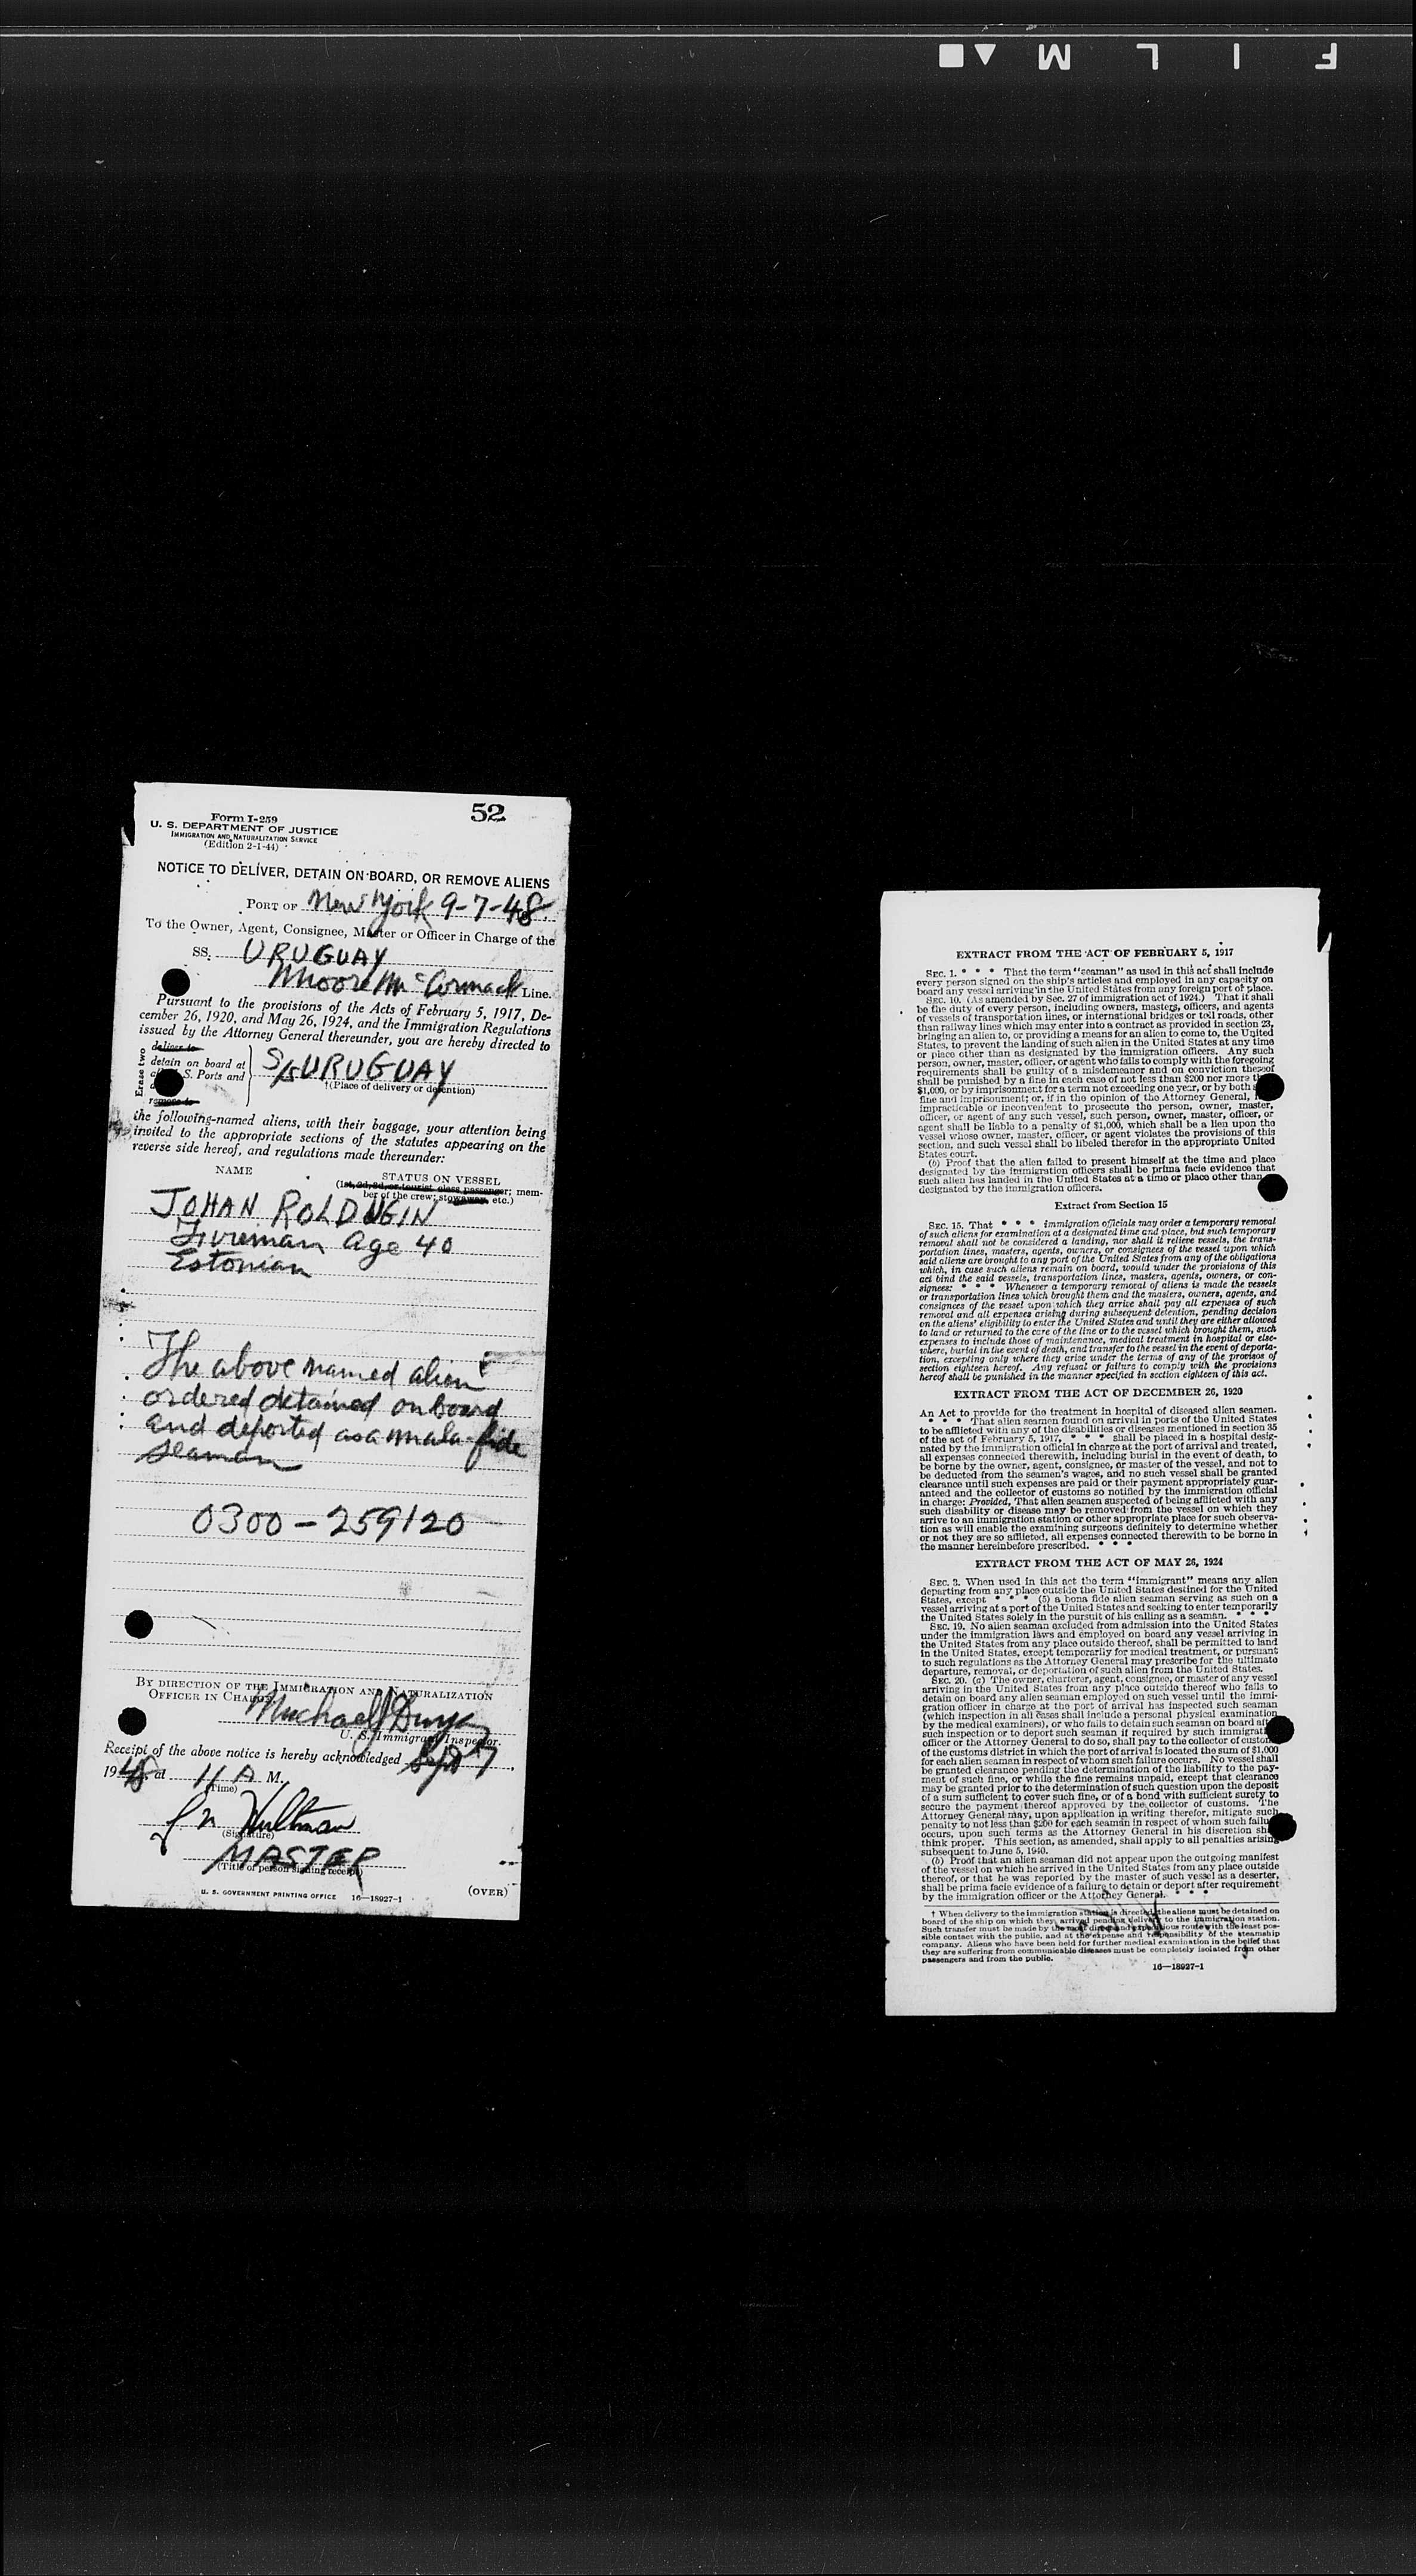 F I L M
52
Form I-259
U. S. DEPARTMENT OF JUSTICE
IMMIGRATION AND NATURALIZATION SERVICE
(Edition 2-1-44)
NOTICE TO DELIVER, DETAIN ON BOARD, OR REMOVE ALIENS
PORT OF New York 9-7-48
To the Owner, Agent, Consignee, Master or Officer in Charge of the
SS. URUGUAY
Moore McCormack Line.
Pursuant to the provisions of the Acts of February 5, 1917, De-
cember 26, 1920, and May 26, 1924, and the Immigration Regulations
issued by the Attorney General thereunder, you are hereby directed to
Erase two
deliver to
detain on board at
S. Ports and
remove to
S/S URUGUAY
†(Place of delivery or detention)
the following-named aliens, with their baggage, your attention being
invited to the appropriate sections of the statutes appearing on the
reverse side hereof, and regulations made thereunder:
NAME
STATUS ON VESSEL
(1st, 2d, 3d, or tourist class passenger; mem-
ber of the crew; stowaway, etc.)
JOHAN ROLDUGIN
Fireman age 40
Estonian
The above named alien
ordered detained on board
and deported as a mala-fide
seaman
0300-259120
BY DIRECTION OF THE IMMIGRATION AND NATURALIZATION
OFFICER IN CHARGE.
Michael
U. S. Immigrant Inspector.
Receipt of the above notice is hereby acknowledged Sept 7,
1948 at 11 A M.
(Time)
Hultman
(Signature)
MASTER
(Title of person signing receipt)
U. S. GOVERNMENT PRINTING OFFICE 16—18927-1
(OVER)
EXTRACT FROM THE ACT OF FEBRUARY 5, 1917
SEC. 1. * * * That the term "seaman" as used in this act shall include
every person signed on the ship's articles and employed in any capacity on
board any vessel arriving in the United States from any foreign port or place.
SEC. 10. (As amended by Sec. 27 of immigration act of 1924.) That it shall
be the duty of every person, including owners, masters, officers, and agents
of vessels of transportation lines, or international bridges or toll roads, other
than railway lines which may enter into a contract as provided in section 23,
bringing an alien to, or providing a means for an alien to come to, the United
States, to prevent the landing of such alien in the United States at any time
or place other than as designated by the immigration officers. Any such
person, owner, master, officer, or agent who fails to comply with the foregoing
requirements shall be guilty of a misdemeanor and on conviction thereof
shall be punished by a fine in each case of not less than $200 nor more
$1,000, or by imprisonment for a term not exceeding one year, or by both
fine and imprisonment; or, if in the opinion of the Attorney General,
impracticable or inconvenient to prosecute the person, owner, master,
officer, or agent of any such vessel, such person, owner, master, officer, or
agent shall be liable to a penalty of $1,000, which shall be a lien upon the
vessel whose owner, master, officer, or agent violates the provisions of this
section, and such vessel shall be libeled therefor in the appropriate United
States court.
(b) Proof that the alien failed to present himself at the time and place
designated by the immigration officers shall be prima facie evidence that
such alien has landed in the United States at a time or place other than
designated by the immigration officers.
Extract from Section 15
SEC. 15. That * * * immigration officials may order a temporary removal
of such aliens for examination at a designated time and place, but such temporary
removal shall not be considered a landing, nor shall it relieve vessels, the trans-
portation lines, masters, agents, owners, or consignees of the vessel upon which
said aliens are brought to any port of the United States from any of the obligations
which, in case such aliens remain on board, would under the provisions of this
act bind the said vessels, transportation lines, masters, agents, owners, or con-
signees: * * * Whenever a temporary removal of aliens is made the vessels
or transportation lines which brought them and the masters, owners, agents, and
consignees of the vessel upon which they arrive shall pay all expenses of such
removal and all expenses arising during subsequent detention, pending decision
on the aliens' eligibility to enter the United States and until they are either allowed
to land or returned to the care of the line or to the vessel which brought them, such
expenses to include those of maintenance, medical treatment in hospital or else-
where, burial in the event of death, and transfer to the vessel in the event of deporta-
tion, excepting only where they arise under the terms of any of the provisos of
section eighteen hereof. Any refusal or failure to comply with the provisions
hereof shall be punished in the manner specified in section eighteen of this act.
EXTRACT FROM THE ACT OF DECEMBER 26, 1920
An Act to provide for the treatment in hospital of diseased alien seamen.
* * * That alien seamen found on arrival in ports of the United States
to be afflicted with any of the disabilities or diseases mentioned in section 35
of the act of February 5, 1917, * * * shall be placed in a hospital desig-
nated by the immigration official in charge at the port of arrival and treated,
all expenses connected therewith, including burial in the event of death, to
be borne by the owner, agent, consignee, or master of the vessel, and not to
be deducted from the seamen's wages, and no such vessel shall be granted
clearance until such expenses are paid or their payment appropriately guar-
anteed and the collector of customs so notified by the immigration official
in charge: Provided, That alien seamen suspected of being afflicted with any
such disability or disease may be removed from the vessel on which they
arrive to an immigration station or other appropriate place for such observa-
tion as will enable the examining surgeons definitely to determine whether
or not they are so afflicted, all expenses connected therewith to be borne in
the manner hereinbefore prescribed. * * *
EXTRACT FROM THE ACT OF MAY 26, 1924
SEC. 3. When used in this act the term "immigrant" means any alien
departing from any place outside the United States destined for the United
States, except * * * (5) a bona fide alien seaman serving as such on a
vessel arriving at a port of the United States and seeking to enter temporarily
the United States solely in the pursuit of his calling as a seaman. * * *
SEC. 19. No alien seaman excluded from admission into the United States
under the immigration laws and employed on board any vessel arriving in
the United States from any place outside thereof, shall be permitted to land
in the United States, except temporarily for medical treatment, or pursuant
to such regulations as the Attorney General may prescribe for the ultimate
departure, removal, or deportation of such alien from the United States.
SEC. 20. (a) The owner, charterer, agent, consignee, or master of any vessel
arriving in the United States from any place outside thereof who fails to
detain on board any alien seaman employed on such vessel until the immi-
gration officer in charge at the port of arrival has inspected such seaman
(which inspection in all cases shall include a personal physical examination
by the medical examiners), or who fails to detain such seaman on board
such inspection or to deport such seaman if required by such
officer or the Attorney General to do so, shall pay to the collector of
of the customs district in which the port of arrival is located the sum of $1,000
for each alien seaman in respect of whom such failure occurs. No vessel shall
be granted clearance pending the determination of the liability to the pay-
ment of such fine, or while the fine remains unpaid, except that clearance
may be granted prior to the determination of such question upon the deposit
of a sum sufficient to cover such fine, or of a bond with sufficient surety to
secure the payment thereof approved by the collector of customs. The
Attorney General may, upon application in writing therefor, mitigate such
penalty to not less than $200 for each seaman in respect of whom such
occurs, upon such terms as the Attorney General in his discretion
think proper. This section, as amended, shall apply to all penalties arising
subsequent to June 5, 1940.
(b) Proof that an alien seaman did not appear upon the outgoing manifest
of the vessel on which he arrived in the United States from any place outside
thereof, or that he was reported by the master of such vessel as a deserter,
shall be prima facie evidence of a failure to detain or deport after requirement
by the immigration officer or the Attorney General. * * *
† When delivery to the immigration station is directed, the aliens must be detained on
board of the ship on which they arrived pending delivery to the immigration station.
Such transfer must be made by the most direct and expeditious route with the least pos-
sible contact with the public, and at the expense and responsibility of the steamship
company. Aliens who have been held for further medical examination in the belief that
they are suffering from communicable diseases must be completely isolated from other
passengers and from the public.
16—18927-1